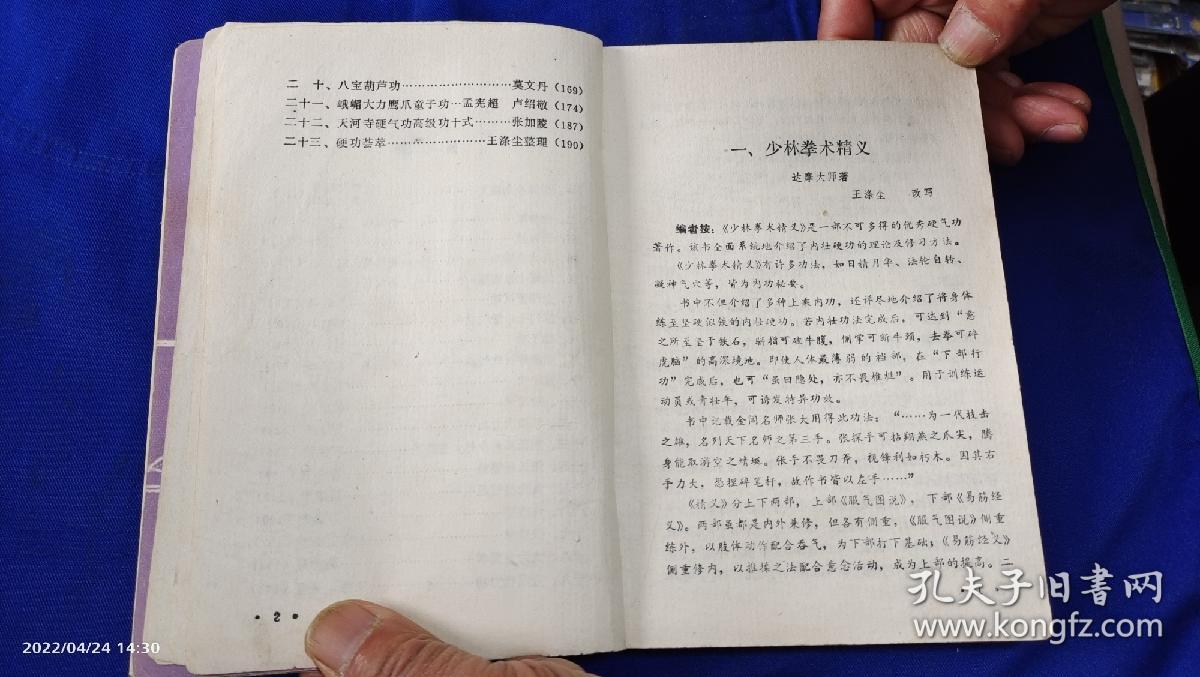 二 十、八宝葫芦功……………………莫文丹(169)
二十一、峨嵋大力鹰爪童子功…孟宪超 卢绍敬(174)
二十二、天河寺硬气功高级功十式………张加陵(187)
二十三、硬功荟萃……………………王涤尘整理(190)
• 2 •
一、少林拳术精义
达摩大师著
王涤尘 改写
编者按:《少林拳术精义》是一部不可多得的优秀硬气功
著作。该书全面系统地介绍了内壮硬功的理论及修习方法。
《少林拳术精义》有许多功法,如日精月华、法轮自转、
凝神气穴等,皆为内功秘要。
书中不但介绍了多种上乘内功,还详尽地介绍了将身体
练至坚硬似铁的内壮硬功。若内壮功法完成后,可达到“意
之所至坚于铁石,骈指可破牛腹,侧掌可断牛颈,去拳可碎
虎脑”的高深境地。即使人体最薄弱的裆部,在“下部行
功”完成后,也可“虽曰隐处,亦不畏椎梃”。用于训练运
动员或青壮年,可诱发特异功效。
书中记载全国名师张大用得此功法:“……为一代技击
之雄,名列天下名师之第三手。张探手可拈翔燕之爪尖,腾
身能取游空之蜻蜓。张手不畏刀斧,视锋利如朽木。因其右
手力大,恐捏碎笔杆,故作书皆以左手……”
《精义》分上下两部,上部《服气图说》,下部《易筋经
义》。两部虽都是内外兼修,但各有侧重,《服气图说》侧重
练外,以肢体动作配合吞气,为下部打下基础;《易筋经义》
侧重修内,以推揉之法配合意念活动,成为上部的提高。二
孔夫子旧书网
www.kongfz.com
2022/04/24 14:30